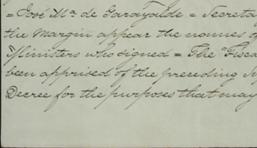 = José Ma. de Garayalde = Secreta
the Margin appear the names o
Ministers who signed = The "Fisca
been apprised of the preceding
Decree for the purposes that may